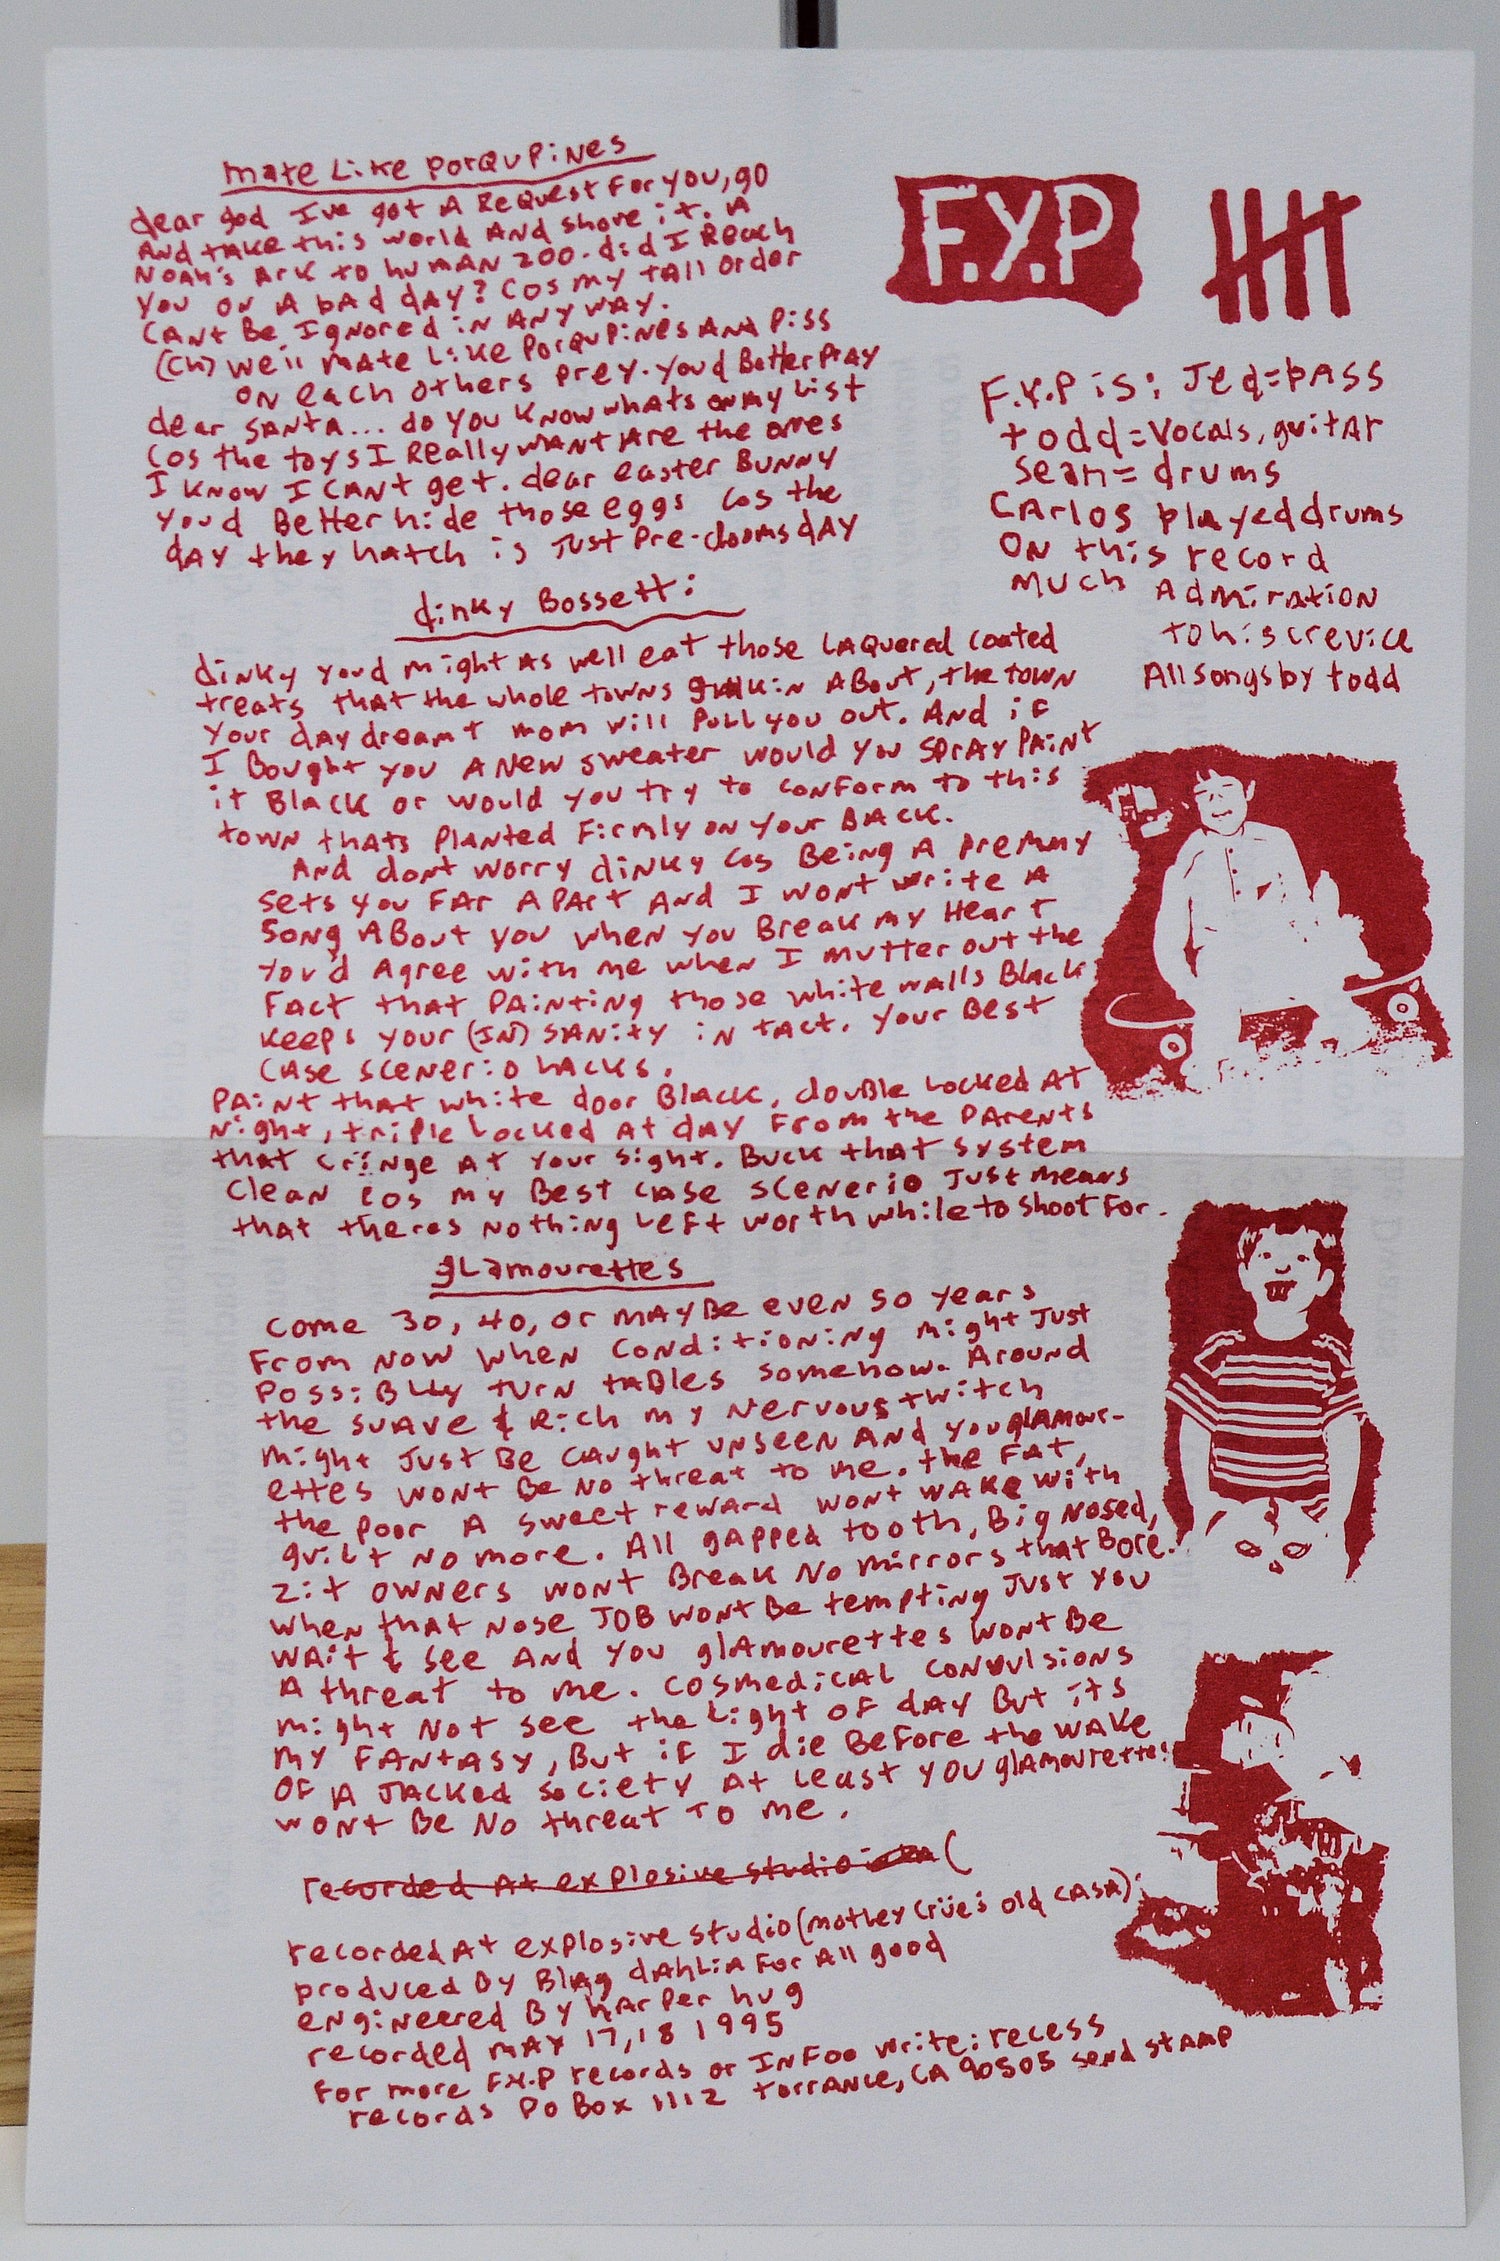 mate Like PorQuPiNes
dear god I've got A ReQuest For you, go
And take this world And shove it. A
Noah's Ark to huMAN zoo. did I Reach
you on A bad day? Cos my tall order
CANt Be Ignored in ANy WAY.
(Ch) We'll mate Like PorQuPiNes And Piss
on each others Prey. Youd Better Pray
dear SANTA... do you know whats on my List
Cos the toys I Really wANt Are the ones
I know I CANt get. dear easter BUNNy
youd Better hide those eggs Cos the
day they hatch is Just Pre-doomsday
dinky Bossett:
dinky youd might As well eat those LAQuered coated
treats that the whole towns tAlkin About, the town
your daydreamt mom will Pull you out. And if
I Bought you A New sweater would you spray PAint
it Black or would you try to conform to this
town thats Planted Firmly on your BACK.
And dont worry dinky Cos Being A Premmy
sets you FAr APArt And I wont write A
song About you when you Break my Heart
You'd Agree with me when I mutter out the
Fact that PAinting those white walls Black
keeps your (IN) SANity in tact. Your Best
Case Scenerio hacks.
PAint that white door Black, double Locked At
Night, triple Locked At day From the PArents
that cringe At your sight. Buck that system
clean cos my Best case scenerio Just means
that theres Nothing Left worth while to shoot For.
gLamourettes
Come 30, 40, or mAyBe even 50 years
From Now when Conditioning might Just
PossiBLy turn tABles somehow. Around
the suave & Rich my Nervous twitch
might Just Be caught unseen And you glAmour-
ettes wont Be No threat to me. the FAt,
the poor A sweet reward wont wake with
guilt No more. All gapped tooth, Big Nosed,
zit owners wont Break No mirrors that Bore.
when that Nose JOB wont Be tempting Just you
wait & see And you glAmourettes wont Be
A threat to me. Cosmedical Convulsions
might Not see the Light oF dAy But its
my FANtAsy, But if I die BeFore the wake
OF A Jacked society At Least you glamourettes
wont Be No threat To me.
recorded At explosive studio (
recorded At explosive studio (motley Crüe's old CASA)
produced By Blag dAhLiA For All good
engineered By hArPer hug
recorded mAy 17, 18 1995
For more F.Y.P records or INFoo write: recess
records Po Box 1112 torrANce, CA 90505 send stAmp
F.Y.P
F.Y.P is: Jed=bAss
todd=Vocals, guitAr
Sean= drums
CArlos played drums
ON this record
Much Admiration
to his crevice
All songs by todd